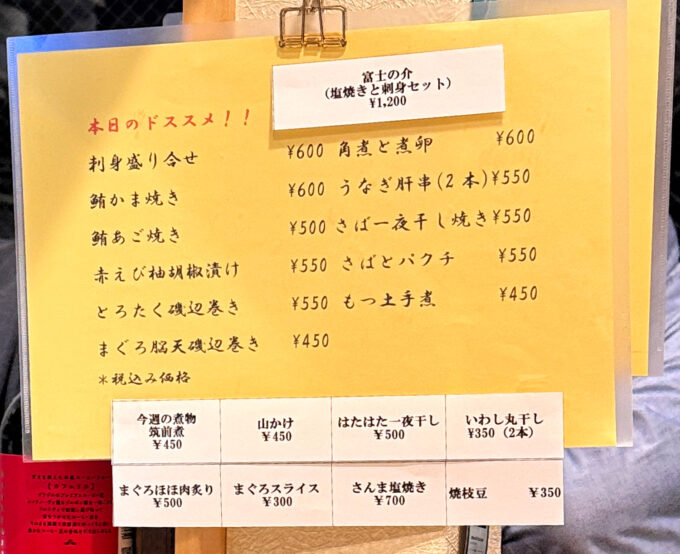 富士の介
(塩焼きと刺身セット)
¥1,200
本日のドススメ!!
刺身盛り合せ ¥600
鮪かま焼き ¥600
鮪あご焼き ¥500
赤えび柚胡椒漬け ¥550
とろたく磯辺巻き ¥550
まぐろ脳天磯辺巻き ¥450
*税込み価格
角煮と煮卵 ¥600
うなぎ肝串(2本)¥550
さば一夜干し焼き¥550
さばとパクチ ¥550
もつ土手煮 ¥450
今週の煮物
筑前煮
¥450
山かけ
¥450
はたはた一夜干し
¥500
いわし丸干し
¥350(2本)
まぐろほほ肉炙り
¥500
まぐろスライス
¥300
さんま塩焼き
¥700
焼枝豆 ¥350